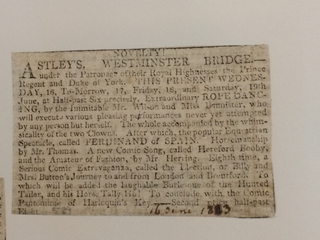 NOVELTY!
ASTLEY'S, WESTMINSTER BRIDGE.—
under the Patronage of their Royal Highnesses the Prince
Regent and Duke of York. THIS PRESENT WEDNES-
DAY, 16, To-Morrow, 17, Friday, 18, and Saturday, 19th
June, at Half-past Six precisely, Extraordinary ROPE DANC-
ING, by the Inimitable Mr. Wilson and Miss Dennister, who
will execute various pleasing performances never yet attempted
by any person but herself. The whole accompanied by the whim-
sicality of the two Clowns. After which, the popular Equestrian
Spectacle, called FERDINAND OF SPAIN. Horsemanship
by Mr. Thomas. A new Comic Song, called Hereford Booby,
and the Amateur of Fashion, by Mr. Herring. Eighth time, a
Serious Comic Extravaganza, called the Election, or Billy and
Mrs. Button's Journey to and from London and Brentford. To
which will be added the laughable Burlesque of the Hunted
Tailor, and his Hero, Tally Ho! To conclude with the Comic
Pantomime of Harlequin's Key. Second price half-past
Eight.
16 June